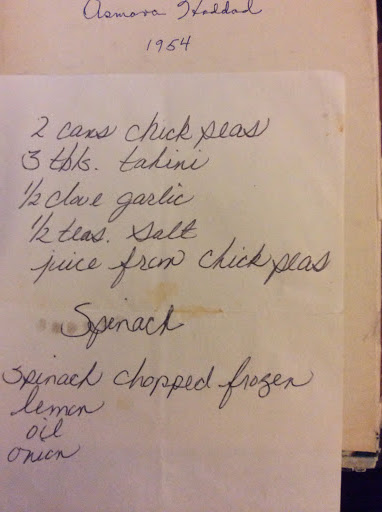 Asmara Haddad
1954
2 cans chick peas
3 tbls. tahini
1/2 clove garlic
1/2 teas. salt
juice from chick peas
Spinach
spinach chopped frozen
lemon
oil
onion